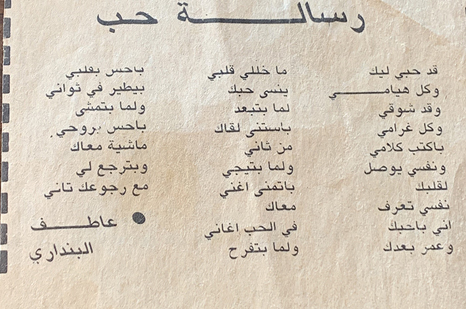 رسالة حب
قد حبي ليك
وكل هيامي
وقد شوقي
وكل غرامي
باكتب كلامي
ونفسي يوصل
لقلبك
نفسي تعرف
اني باحبك
وعمر بعدك
ما خللي قلبي
ينسى حبك
لما بتبعد
باستنى لقاك
من ثاني
ولما بتيجي
باتمنى اغني
معاك
في الحب اغاني
ولما بتفرح
باحس بقلبي
بيطير في ثواني
ولما بتمشي
باحس بروحي
ماشية معاك
وبترجع لي
مع رجوعك تاني
● عاطف
البنداري